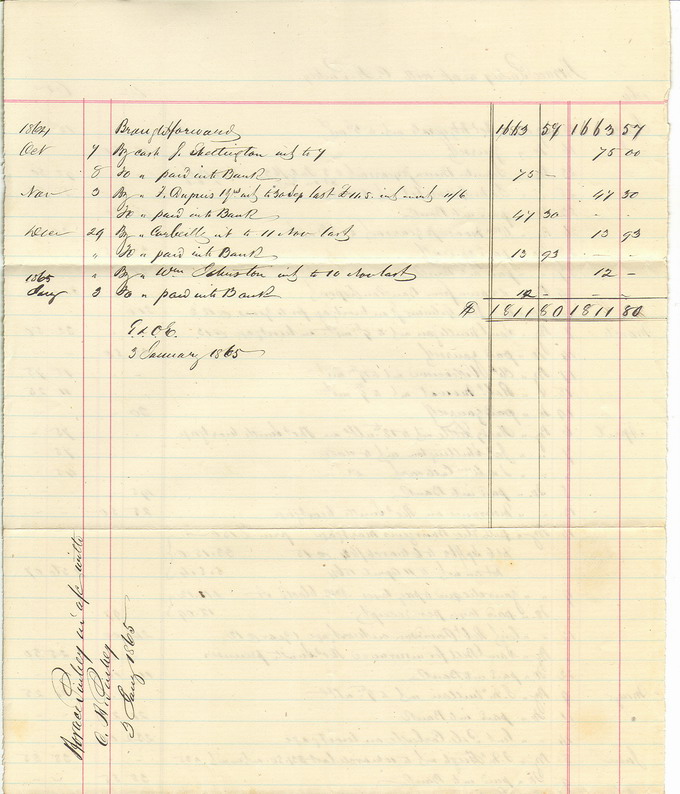 1864 Brought Forward 1663 57 1663 57
Oct 7 By cash J. Skettington int to 7 75 00
8 To " paid into Bank 75 —
Nov 3 By " J. Angus 1 yrs int to 30 Sep last £11.5. int 47 30
To " paid into Bank 47 30 - -
Decr 29 By " int to 11 Nov last 13 93
" To " paid into Bank 13 93 - -
1865 " By " Wm Johnston int to 10 Nov last 12 —
Jany 3 To " paid into Bank 12 — - -
$ 1811 80 1811 80
E. & O. E.
3 January 1865
Horace in a/c with
C. H.
3 Jany 1865